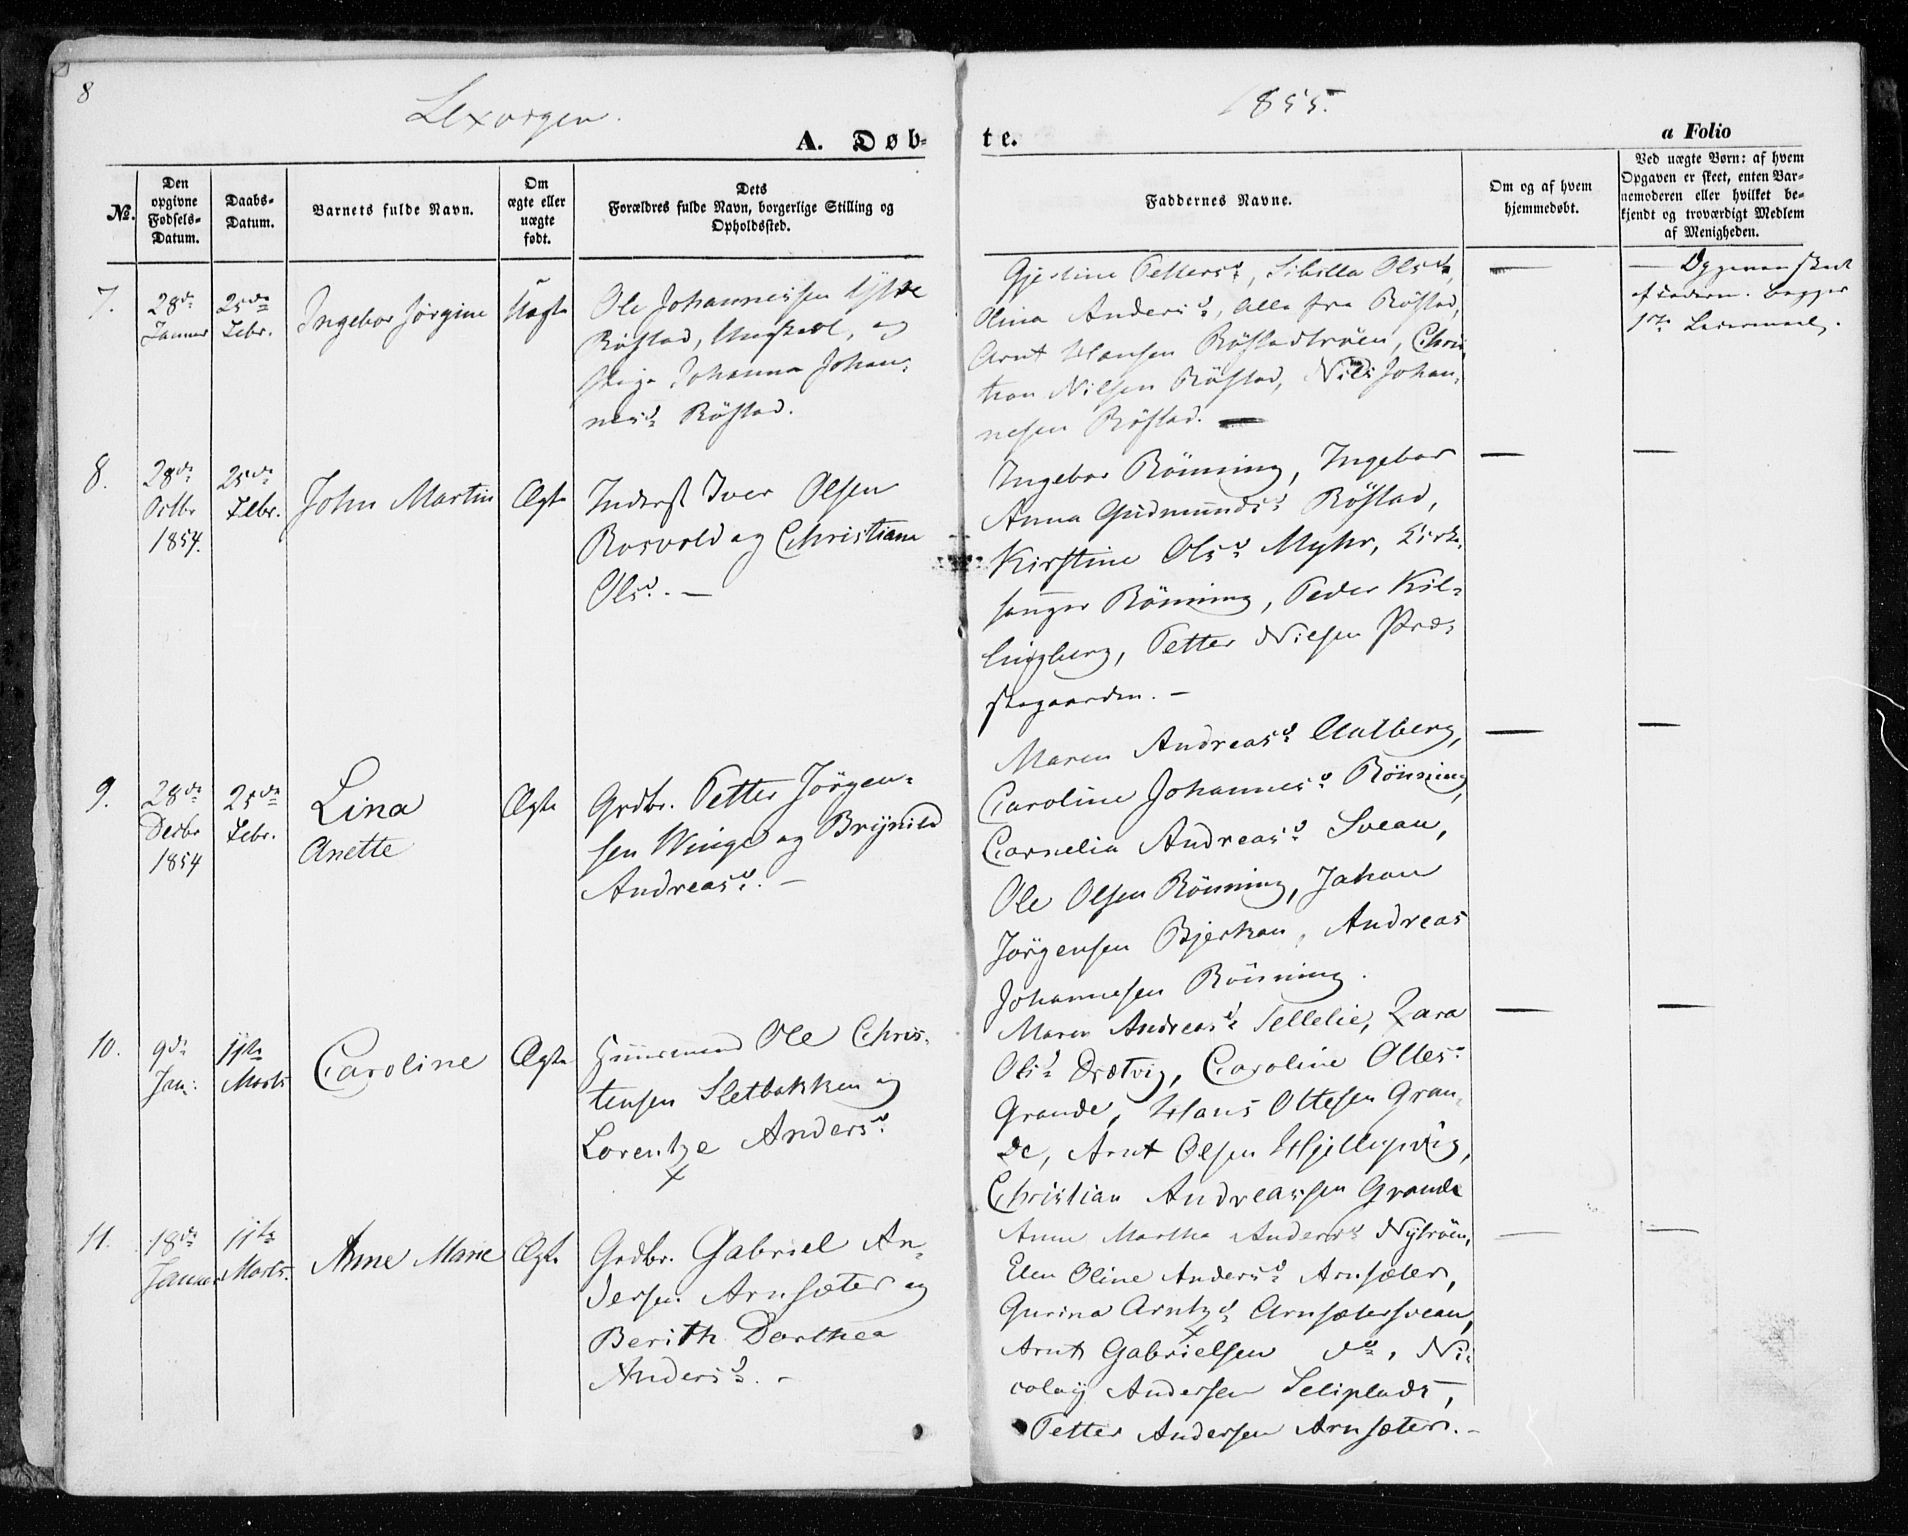 8
1855.
A. Døb-
te.
a Folio
№.
Den
opgivne
Fødsels-
Datum.
Daabs-
Datum.
Barnets fulde Navn.
Om
ægte eller
uægte
født.
Dets
Forældres fulde Navn, borgerlige Stilling og
Opholdssted.
Faddernes Navne.
Om og af hvem
hjemmedøbt.
Ved uægte Børn: af hvem
Opgaven er skeet, enten Bar-
nemoderen eller hvilket be-
kjendt og troværdigt Medlem
af Menigheden.
7.
28de
Januar
25de
Febr.
Ingebor Jørgine
Uægte
Ole Johannessen
Røstad, Ungkarl, og
Pige Johanna Johan-
nesd. Røstad.
Gjertine Pettersd., Sibilla Olsd.,
Olina Andersd., alle fra Røstad,
Arnt Hansen Røstadtrøen, Chris-
tian Nilsen Røstad, Nils Johan-
nesen Røstad. —
— Opgaven skeet
af Faderen. Begges
1ste Leiermaal.
8.
28de
Octbr
1854.
25de
Febr.
John Martin
Ægte
Inderst Iver Olsen
Rosvold og Christiane
Olsd. —
Ingebor Rönning, Ingebor
Anna Gudmundsd. Röstad,
Kirstine Olsd. Myhr, Kirke-
sanger Rönning, Peder Kil-
lingberg, Petter Nilsen Præ-
stegaarden. —
—
—
9.
28de
Decbr
1854
25de
Febr.
Lina
Anette
Ægte
Grdbr. Petter Jörgen-
sen Winge og Brynild
Andreasd. —
Maren Andreasd. Aalberg,
Caroline Johannesd. Rönning,
Cornelia Andreasd. Svean,
Ole Olsen Rönning, Johan
Jörgensen Bjerkan, Andreas
Johannesen Rönning.
—
—
10.
9de
Jan:
11te
Marts
Caroline
Ægte
Huusmand Ole Chris-
tensen Sletbakken og
Lorentze Andersd.
Maren Andreasd. Tellelie, Zara
Olsd. Drætvig, Caroline Ottesd.
Grande, Hans Ottesen Gran-
de, Arnt Olsen
Christian Andreassen Grande
—
—
11.
18de
Januar
11te
Marts.
Anne Marie
Ægte
Grdbr. Gabriel An-
dersen Arnsæter og
Berith Dorthea
Andersd. —
Anne Martha Andersd. Nytrøen,
Elen Oline Andersd. Arnsæter,
Gurina Arntzd. Arnsætersvean,
Arnt Gabrielsen do, Ni-
colay Andersen Seliplads,
Petter Andersen Arnsæter. —
—
—